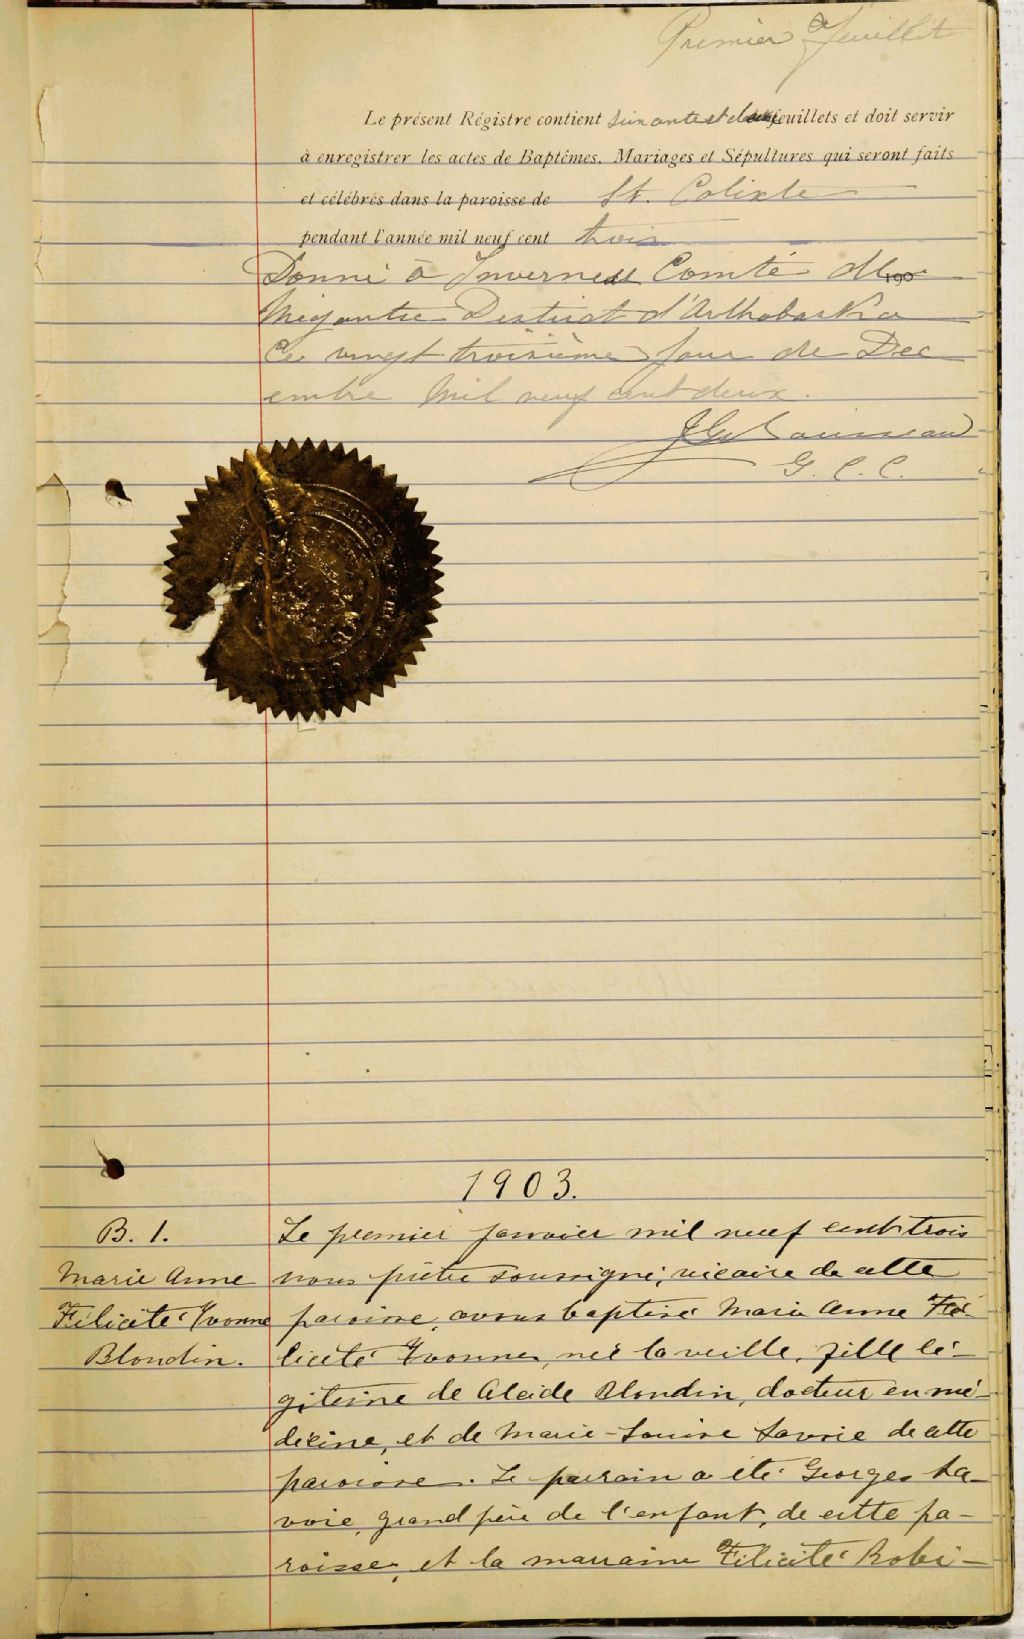 Premier feuillet
Le présent Régistre contient soixante et deux feuillets et doit servir
à enregistrer les actes de Baptêmes, Mariages et Sépultures qui seront faits
et célébrés dans la paroisse de St. Calixte
pendant l'année mil neuf cent trois
Donné à Inverness Comté de 190
Mégantic District d'Arthabaska
Ce vingt troisième jour de Dec
embre Mil neuf cent deux.
Rousseau
G. C. C.
1903.
B. 1.
Marie Anne
Félicité Yvonne
Blondin.
Le premier janvier mil neuf cent trois
nous prêtre soussigné, vicaire de cette
paroisse, avons baptisé Marie Anne Fé-
licité Yvonne, née la veille, fille lé-
gitime de Alcide Blondin, docteur en mé-
decine, et de Marie-Louise Savoie de cette
paroisse. Le parrain a été Georges Sa-
voie, grand père de l'enfant, de cette pa-
roisse, et la marraine Félicité Robi-